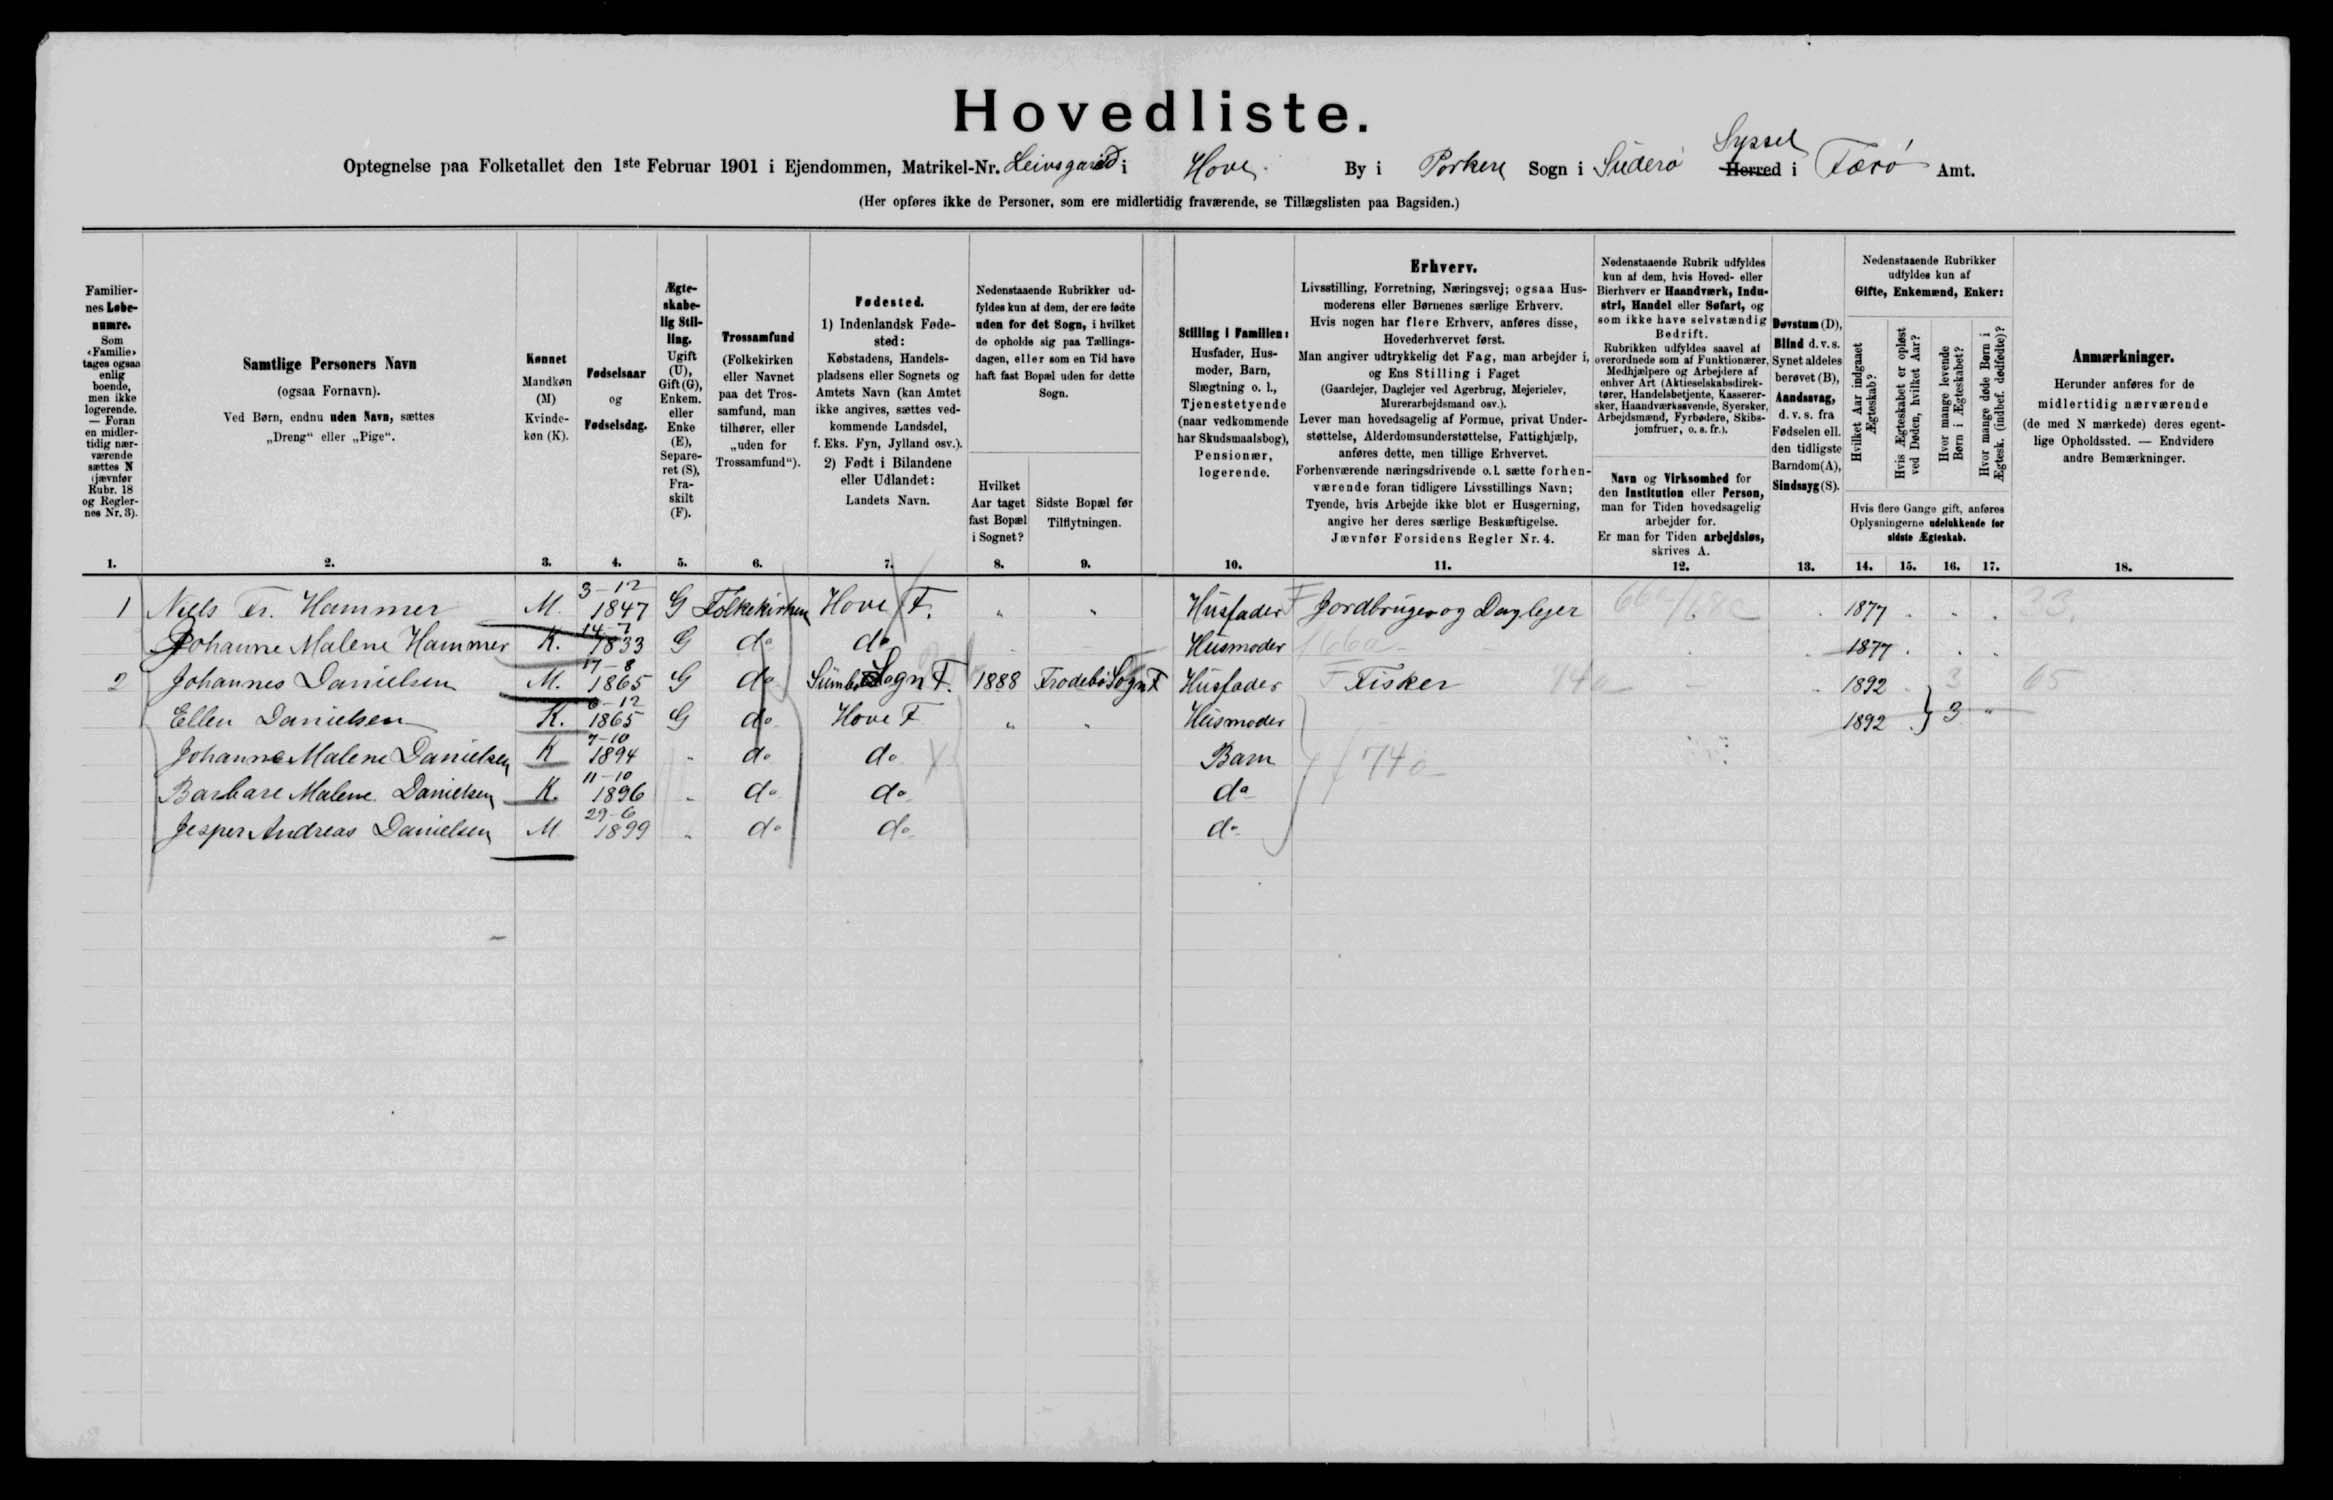 Hovedliste.
Syssel
Optegnelse paa Folketallet den 1ste Februar 1901 i Ejendommen, Matrikel-Nr. i Hove By i Porkere Sogn i Suderø Herred i Færø Amt.
(Her opføres ikke de Personer, som ere midlertidig fraværende, se Tillægslisten paa Bagsiden.)
Familier-
nes Løbe-
numre.
Som
«Familie»
tages ogsaa
enlig
boende,
men ikke
logerende.
— Foran
en midler-
tidig nær-
værende
sættes N
(jævnfør
Rubr. 18
og Regler-
nes Nr. 3).
1.
Samtlige Personers Navn
(ogsaa Fornavn).
Ved Børn, endnu uden Navn, sættes
„Dreng“ eller „Pige“.
2.
Kønnet
Mandkøn
(M)
Kvinde-
køn (K).
3.
Fødselsaar
og
Fødselsdag.
4.
Ægte-
skabe-
lig Stil-
ling.
Ugift
(U),
Gift (G),
Enkem.
eller
Enke
(E),
Separe-
ret (S),
Fra-
skilt
(F).
5.
Trossamfund
(Folkekirken
eller Navnet
paa det Tros-
samfund, man
tilhører, eller
„uden for
Trossamfund“).
6.
Fødested.
1) Indenlandsk Føde-
sted:
Købstadens, Handels-
pladsens eller Sognets og
Amtets Navn (kan Amtet
ikke angives, sættes ved-
kommende Landsdel,
f. Eks. Fyn, Jylland osv.).
2) Født i Bilandene
eller Udlandet:
Landets Navn.
7.
Nedenstaaende Rubrikker ud-
fyldes kun af dem, der ere fødte
uden for det Sogn, i hvilket
de opholde sig paa Tællings-
dagen, eller som en Tid have
haft fast Bopæl uden for dette
Sogn.
Hvilket
Aar taget
fast Bopæl
i Sognet?
8.
Sidste Bopæl før
Tilflytningen.
9.
Stilling i Familien:
Husfader, Hus-
moder, Barn,
Slægtning o. l.,
Tjenestetyende
(naar vedkommende
har Skudsmaalsbog),
Pensionær,
logerende.
10.
Erhverv.
Livsstilling, Forretning, Næringsvej; ogsaa Hus-
moderens eller Børnenes særlige Erhverv.
Hvis nogen har flere Erhverv, anføres disse,
Hovederhvervet først.
Man angiver udtrykkelig det Fag, man arbejder i,
og Ens Stilling i Faget
(Gaardejer, Daglejer ved Agerbrug, Mejerielev,
Murerarbejdsmand osv.).
Lever man hovedsagelig af Formue, privat Under-
støttelse, Alderdomsunderstøttelse, Fattighjælp,
anføres dette, men tillige Erhvervet.
Forhenværende næringsdrivende o. l. sætte forhen-
værende foran tidligere Livsstillings Navn;
Tyende, hvis Arbejde ikke blot er Husgerning,
angive her deres særlige Beskæftigelse.
Jævnfør Forsidens Regler Nr. 4.
11.
Nedenstaaende Rubrik udfyldes
kun af dem, hvis Hoved- eller
Bierhverv er Haandværk, Indu-
stri, Handel eller Søfart, og
som ikke have selvstændig
Bedrift.
Rubrikken udfyldes saavel af
overordnede som af Funktionærer,
Medhjælpere og Arbejdere af
enhver Art (Aktieselskabsdirek-
tører, Handelsbetjente, Kasserer-
sker, Haandværkssvende, Syersker,
Arbejdsmænd, Fyrbødere, Skibs-
jomfruer, o. s. fr.).
Navn og Virksomhed for
den Institution eller Person,
man for Tiden hovedsagelig
arbejder for.
Er man for Tiden arbejdsløs,
skrives A.
12.
Døvstum (D),
Blind d. v. s.
Synet aldeles
berøvet (B),
Aandssvag,
d. v. s. fra
Fødselen ell.
den tidligste
Barndom (A),
Sindssyg (S).
13.
Nedenstaaende Rubrikker
udfyldes kun af
Gifte, Enkemænd, Enker:
Hvilket Aar indgaaet
Ægteskab?
Hvis Ægteskabet er opløst
ved Døden, hvilket Aar?
Hvor mange levende
Børn i Ægteskabet?
Hvor mange døde Børn i
Ægtesk. (indbef. dødfødte)?
Hvis flere Gange gift, anføres
Oplysningerne udelukkende for
sidste Ægteskab.
14. 15. 16. 17.
Anmærkninger.
Herunder anføres for de
midlertidig nærværende
(de med N mærkede) deres egent-
lige Opholdssted. — Endvidere
andre Bemærkninger.
18.
1 Niels Fr. Hammer M. 3-12 1847 G Folkekirken Hove F. " " Husfader F Jordbruger og Daglejer 1877 . . . 23.
Johanne Malene Hammer K. 14-7 1833 G do do Husmoder 66a 1877 . . .
2 Johannes Danielsen M. 17-8 1865 G do Sumbø Sogn F. 1888 Frodebø Sogn F Husfader F Fisker 14a 1892 . 3 65
Ellen Danielsen K. 6-12 1865 G do Hove F " " Husmoder 1892 . } 3 "
Johanne Malene Danielsen K 7-10 1894 " do do Barn 74a
Barbare Malene Danielsen K. 11-10 1896 " do do do
Jesper Andreas Danielsen M 29-6 1899 " do do do